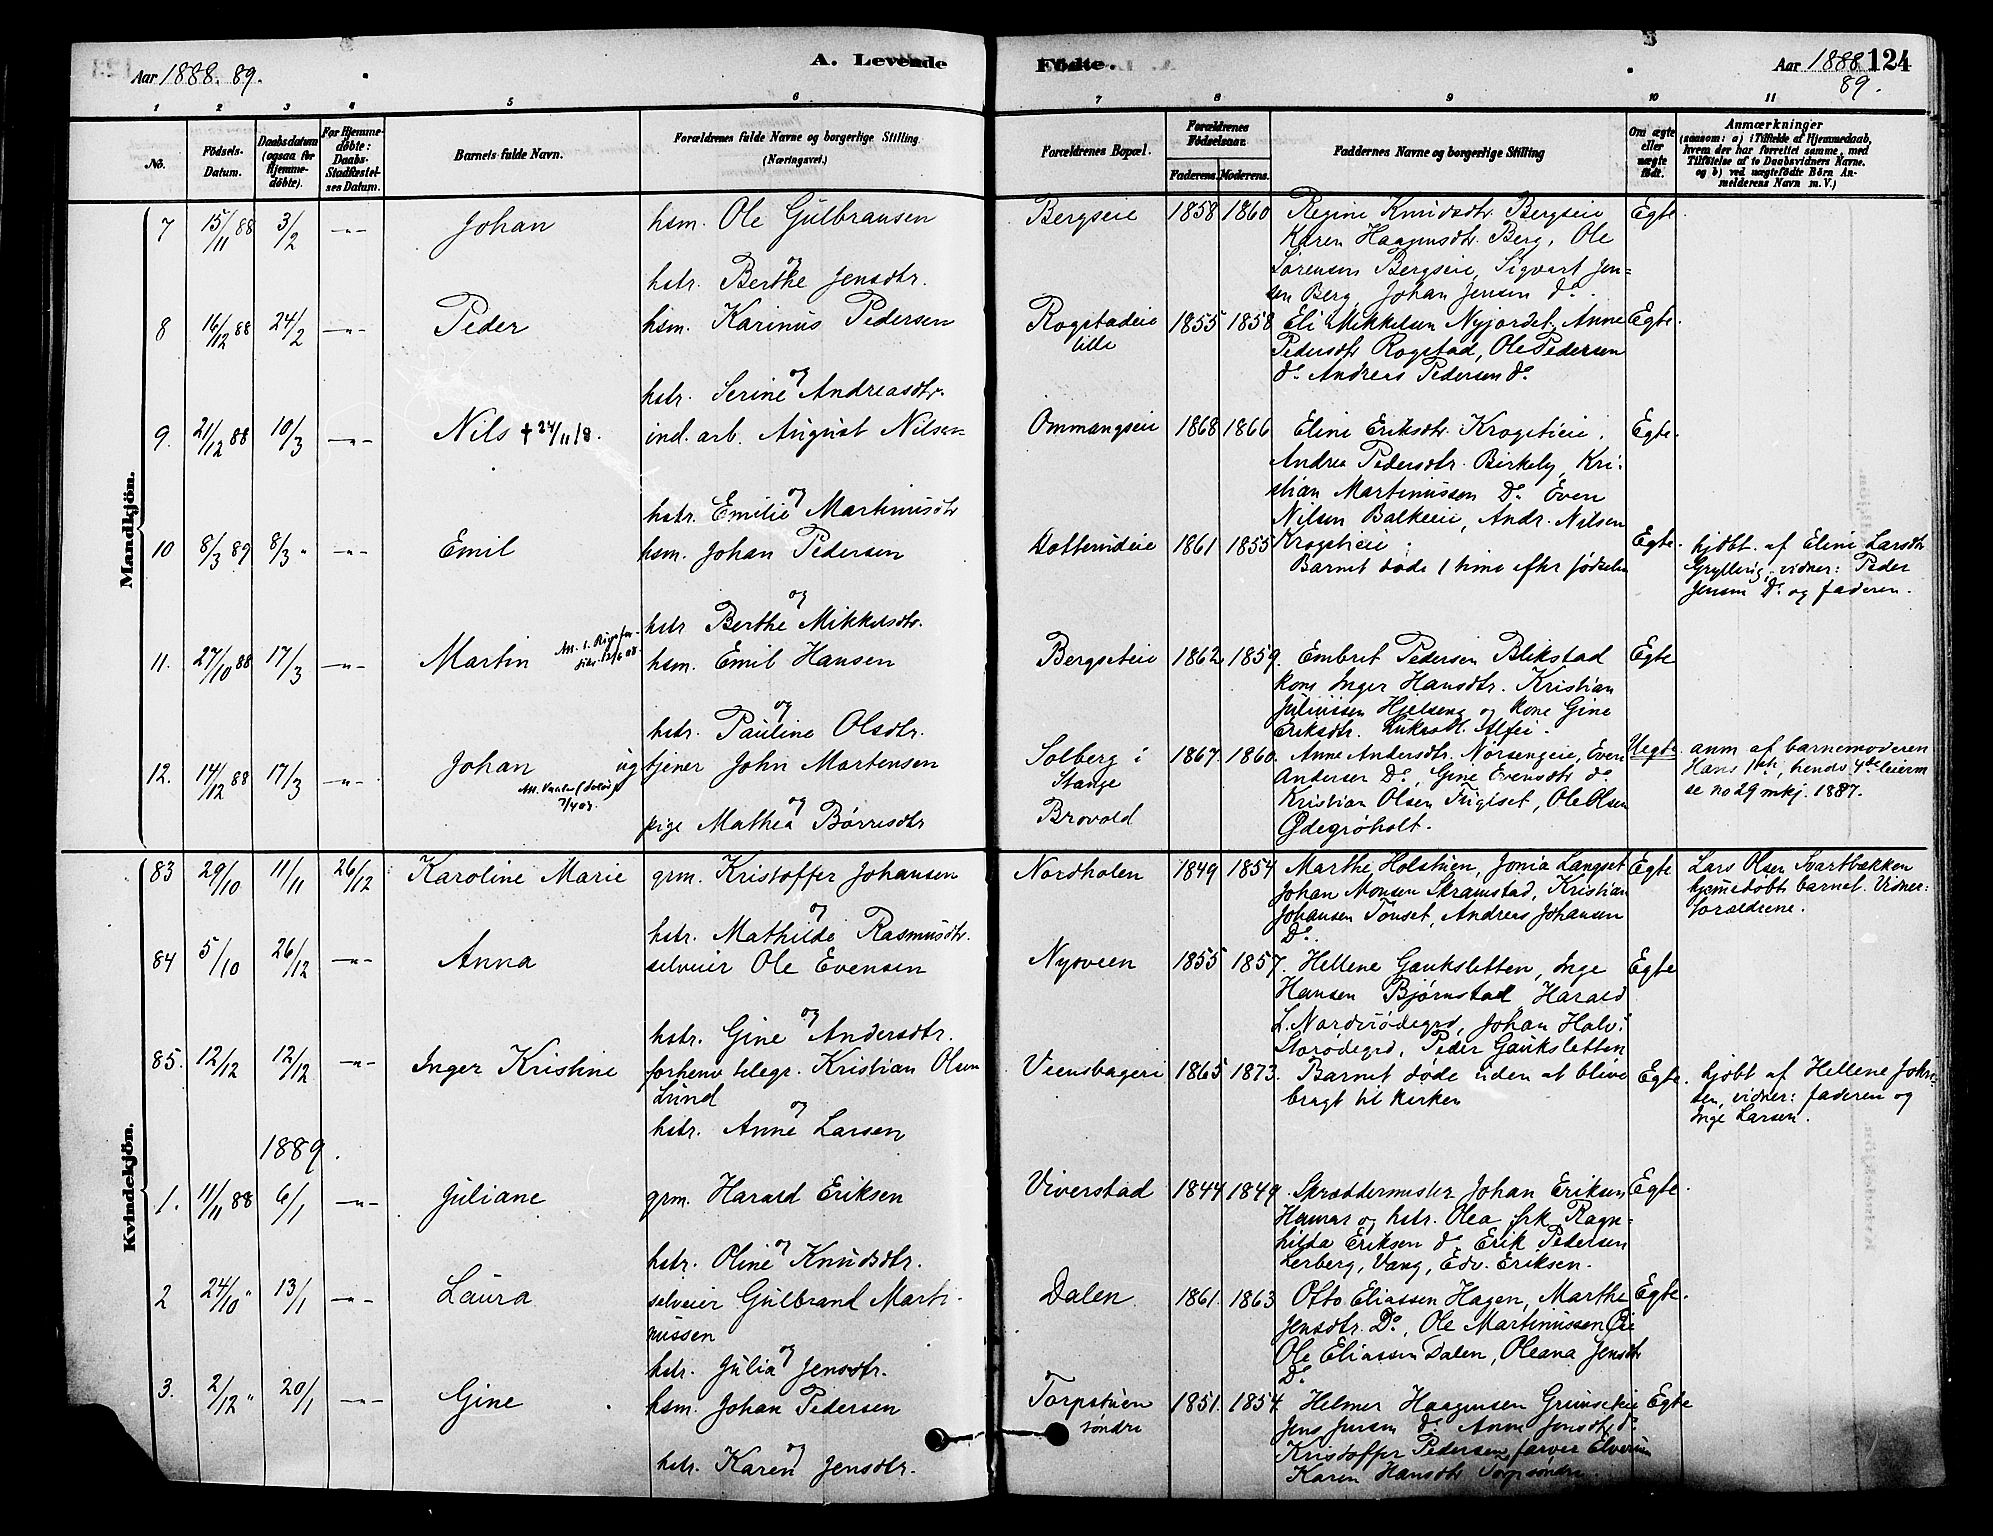 Aar 1888. 89.
A. Levende
Fødte.
Aar 1888 89. 124
1 2 3 4 5 6 7 8 9 10 11
No.
Födsels-Datum.
Daabsdatum (ogsaa for Hjemme-döbte).
For Hjemme-döbte: Daabs-Stadfæstel-ses Datum.
Barnets fulde Navn.
Forældrenes fulde Navne og borgerlige Stilling (Næringsvei).
Forældrenes Bopæl.
Forældrenes Födselsaar.
Faderens. Moderens.
Faddernes Navne og borgerlige Stilling
Om ægte eller uægte födt.
Anmærkninger
(saasom: a) i Tilfælde af Hjemmedaab,
hvem der har forrettet samme, med
Tilföielse af to Daabsvidners Navne.
og b) ved uægtefödte Börn An-
melderens Navn m. V.)
Mandkjön.
7 15/11 88 3/2 -"- Johan hsm. Ole Gulbransen Bergseie 1858 1860 Regine Knudsdtr. Bergseie Egte.
Karen Haagensdtr. Berg, Ole
og
hstr. Berthe Jensdtr. Sørensen Bergseie, Sigvart Jen-
sen Berg, Johan Jensen Do.
8 16/12 88 24/2 -"- Peder hsm. Karinus Pedersen Rogstadeie 1855 1858 Eli Mikkelsen Nyjordet, Anne Egte.
lille Pedersdtr Rogstad, Ole Pedersen
og Do. Andreas Pedersen Do
hstr. Serine Andreasdtr.
9. 21/12 88 10/3 -"- Nils † 24/11 18. ind. arb. August Nilsen Ommangseie 1868 1866 Eline Eriksdtr. Krogstieie. Egte.
Andrea Pedersdtr. Birkely, Kri-
og stian Martinussen Do. Even
hstr. Emilie Martinusdtr Nilsen Balkeeie, Andr. Nilsen
10 8/3 89 8/3 " -"- Emil hsm. Johan Pedersen 1861 1855 Krogstieie. Egte. hjdbt. af Eline Larsdtr
Barnet døde 1 time efter fødselen vidner: Peder
og Jensen Do. og faderen.
hstr Berthe Mikkelsdtr.
11. 27/10 88 17/3 -"- Martin hsm. Emil Hansen 1862 1859. Embret Pedersen Blikstad Egte
kone Inger Hansdtr. Kristian
og Juliussen Hjelseng og kone Gine
hstr. Pauline Olsdtr. Eriksdtr.
12. 14/12 88 17/3 -"- Johan ug tjener John Martensen Solberg i 1867. 1860. Anne Andersdtr. Nørsengeie, Even Uegte anm af barnemoderen
Stange Andersen Do, Gine Evensdtr do Hans 1ste, hendes 4de leierm
Kristian Olsen Frigset, Ole Olsen se no 29 mkj. 1887.
og pige Mathea Børresdtr Brovold Ødegrøholt.
Kvindekjön.
83 29/10 11/11 26/12 Karoline Marie grm. Kristoffer Johansen Nordholen 1849 1854 Marthe Holstuen, Jonia Langset Egte Lars Olsen Svartbækken
Johan Monsen Skramstad, Kristian hjemedøbt barnet. Vidner:
og Johansen Tønset, Andreas Johansen forældrene.
hstr. Mathilde Rasmusdtr. Do.
84 5/10 26/12 -"- Anna selveier Ole Evensen Nysveen 1855 1857. Hellene Gaukslетten, Inge Egte
Hansen Bjørnstad, Harald
og L. Nordrisødegrd, Johan Halv.
hstr. Gine Andersdtr. Storødegrd, Peder Gaukslетten
85. 12/12 12/12 -"- Inger Kristine forhenv telegr. Kristian Olsen Veensbageri 1865 1873. Barnet døde uden at blive Egte. hjdbt af Hellene John-
Lund bragt til kirken sen, vidner: faderen og
og Inge Larsen.
hstr. Anne Larsen
1889.
1. 11/11 88 6/1 -"- Juliane grm. Harald Eriksen Viverstad 1844 1849. Skræddermester Johan Eriksen Egte.
Hamar og hstr. Olea frk Ragn-
og hilda Eriksen do, Erik Pedersen
hstr. Oline Knudsdtr. Lerberg, Vang, Edv. Eriksen.
2 24/10 " 13/1 -"- Laura selveier Gulbrand Marti- Dalen 1861. 1863 Otto Eliassen Hagen, Marthe Egte.
nussen Jensdtr. Do, Ole Martinussen Eie
og Ole Eliassen Dalen, Oleana Jensdtr
hstr. Julia Jensdtr. Do
3. 2/12 " 20/1 -"- Gine hsm. Johan Pedersen Torpstuen 1851. 1854. Helmer Haagensen Egte
søndre Jens Jensen do. Anne Jensdtr do
og Kristoffer Pedersen, farver Elverum
hstr. Karen Jensdtr. Karen Hansdtr Torp søndre.